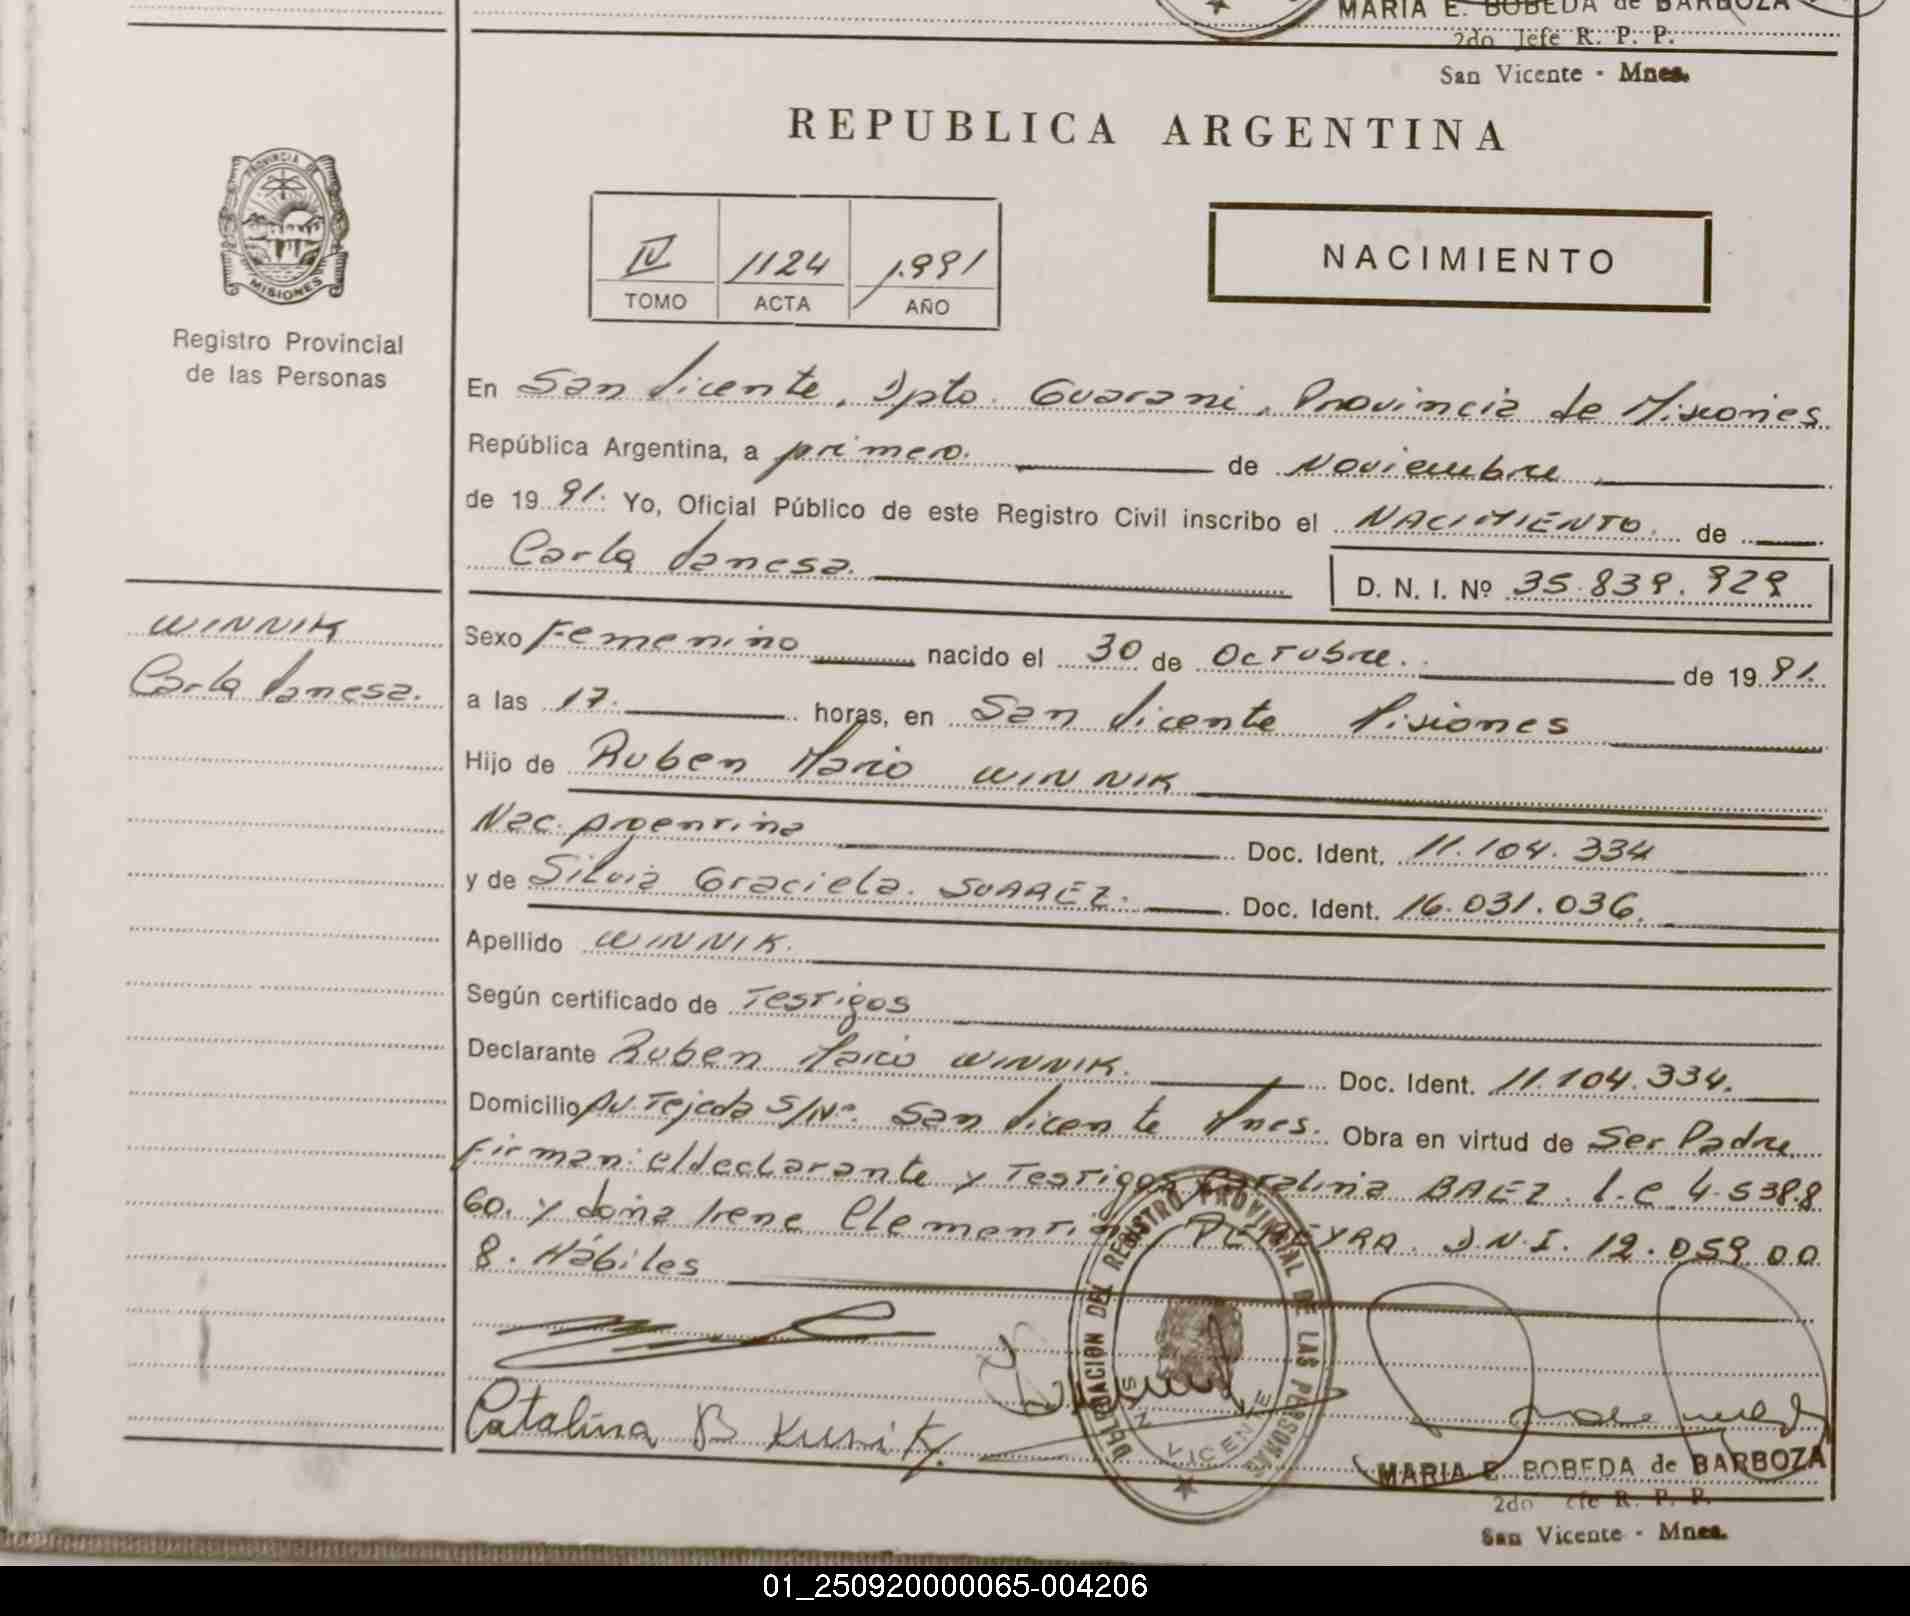 MARIA E. BOBEDA de BARBOZA
2do Jefe R. P. P.
San Vicente - Mnes.
REPUBLICA ARGENTINA
PROVINCIA DE
MISIONES
Registro Provincial
de las Personas
IV 1124 1.991
TOMO ACTA AÑO
NACIMIENTO
En San Vicente, Dpto. Guarani, Provincia de Misiones
República Argentina, a primero. de Noviembre
de 1991. Yo, Oficial Público de este Registro Civil inscribo el NACIMIENTO. de
Carla Vanesa.
D. N. I. Nº 35.839.929
WINNIK
Carla Vanesa.
Sexo Femenino nacido el 30 de Octubre. de 1991.
a las 17. horas, en San Vicente Misiones
Hijo de Ruben Mario WINNIK
Nac. Argentina Doc. Ident. 11.104.334
y de Silvia Graciela. SUAREZ. Doc. Ident. 16.031.036.
Apellido WINNIK.
Según certificado de Testigos
Declarante Ruben Mario WINNIK. Doc. Ident. 11.104.334.
Domicilio Av. Tejeda S/Nº. San Vicente Mnes. Obra en virtud de Ser Padre.
Firman: el declarante y Testigos Catalina BAEZ. L.C 4.538.8
60. y doña Irene Clementina PEREYRA. D.N.I. 12.059.00
8. Hábiles
DELEGACION DEL REGISTRO PROVINCIAL DE LAS PERSONAS
SAN VICENTE
Catalina B
MARIA E. BOBEDA de BARBOZA
2do Jefe R. P. P.
San Vicente - Mnes.
01_250920000065-004206